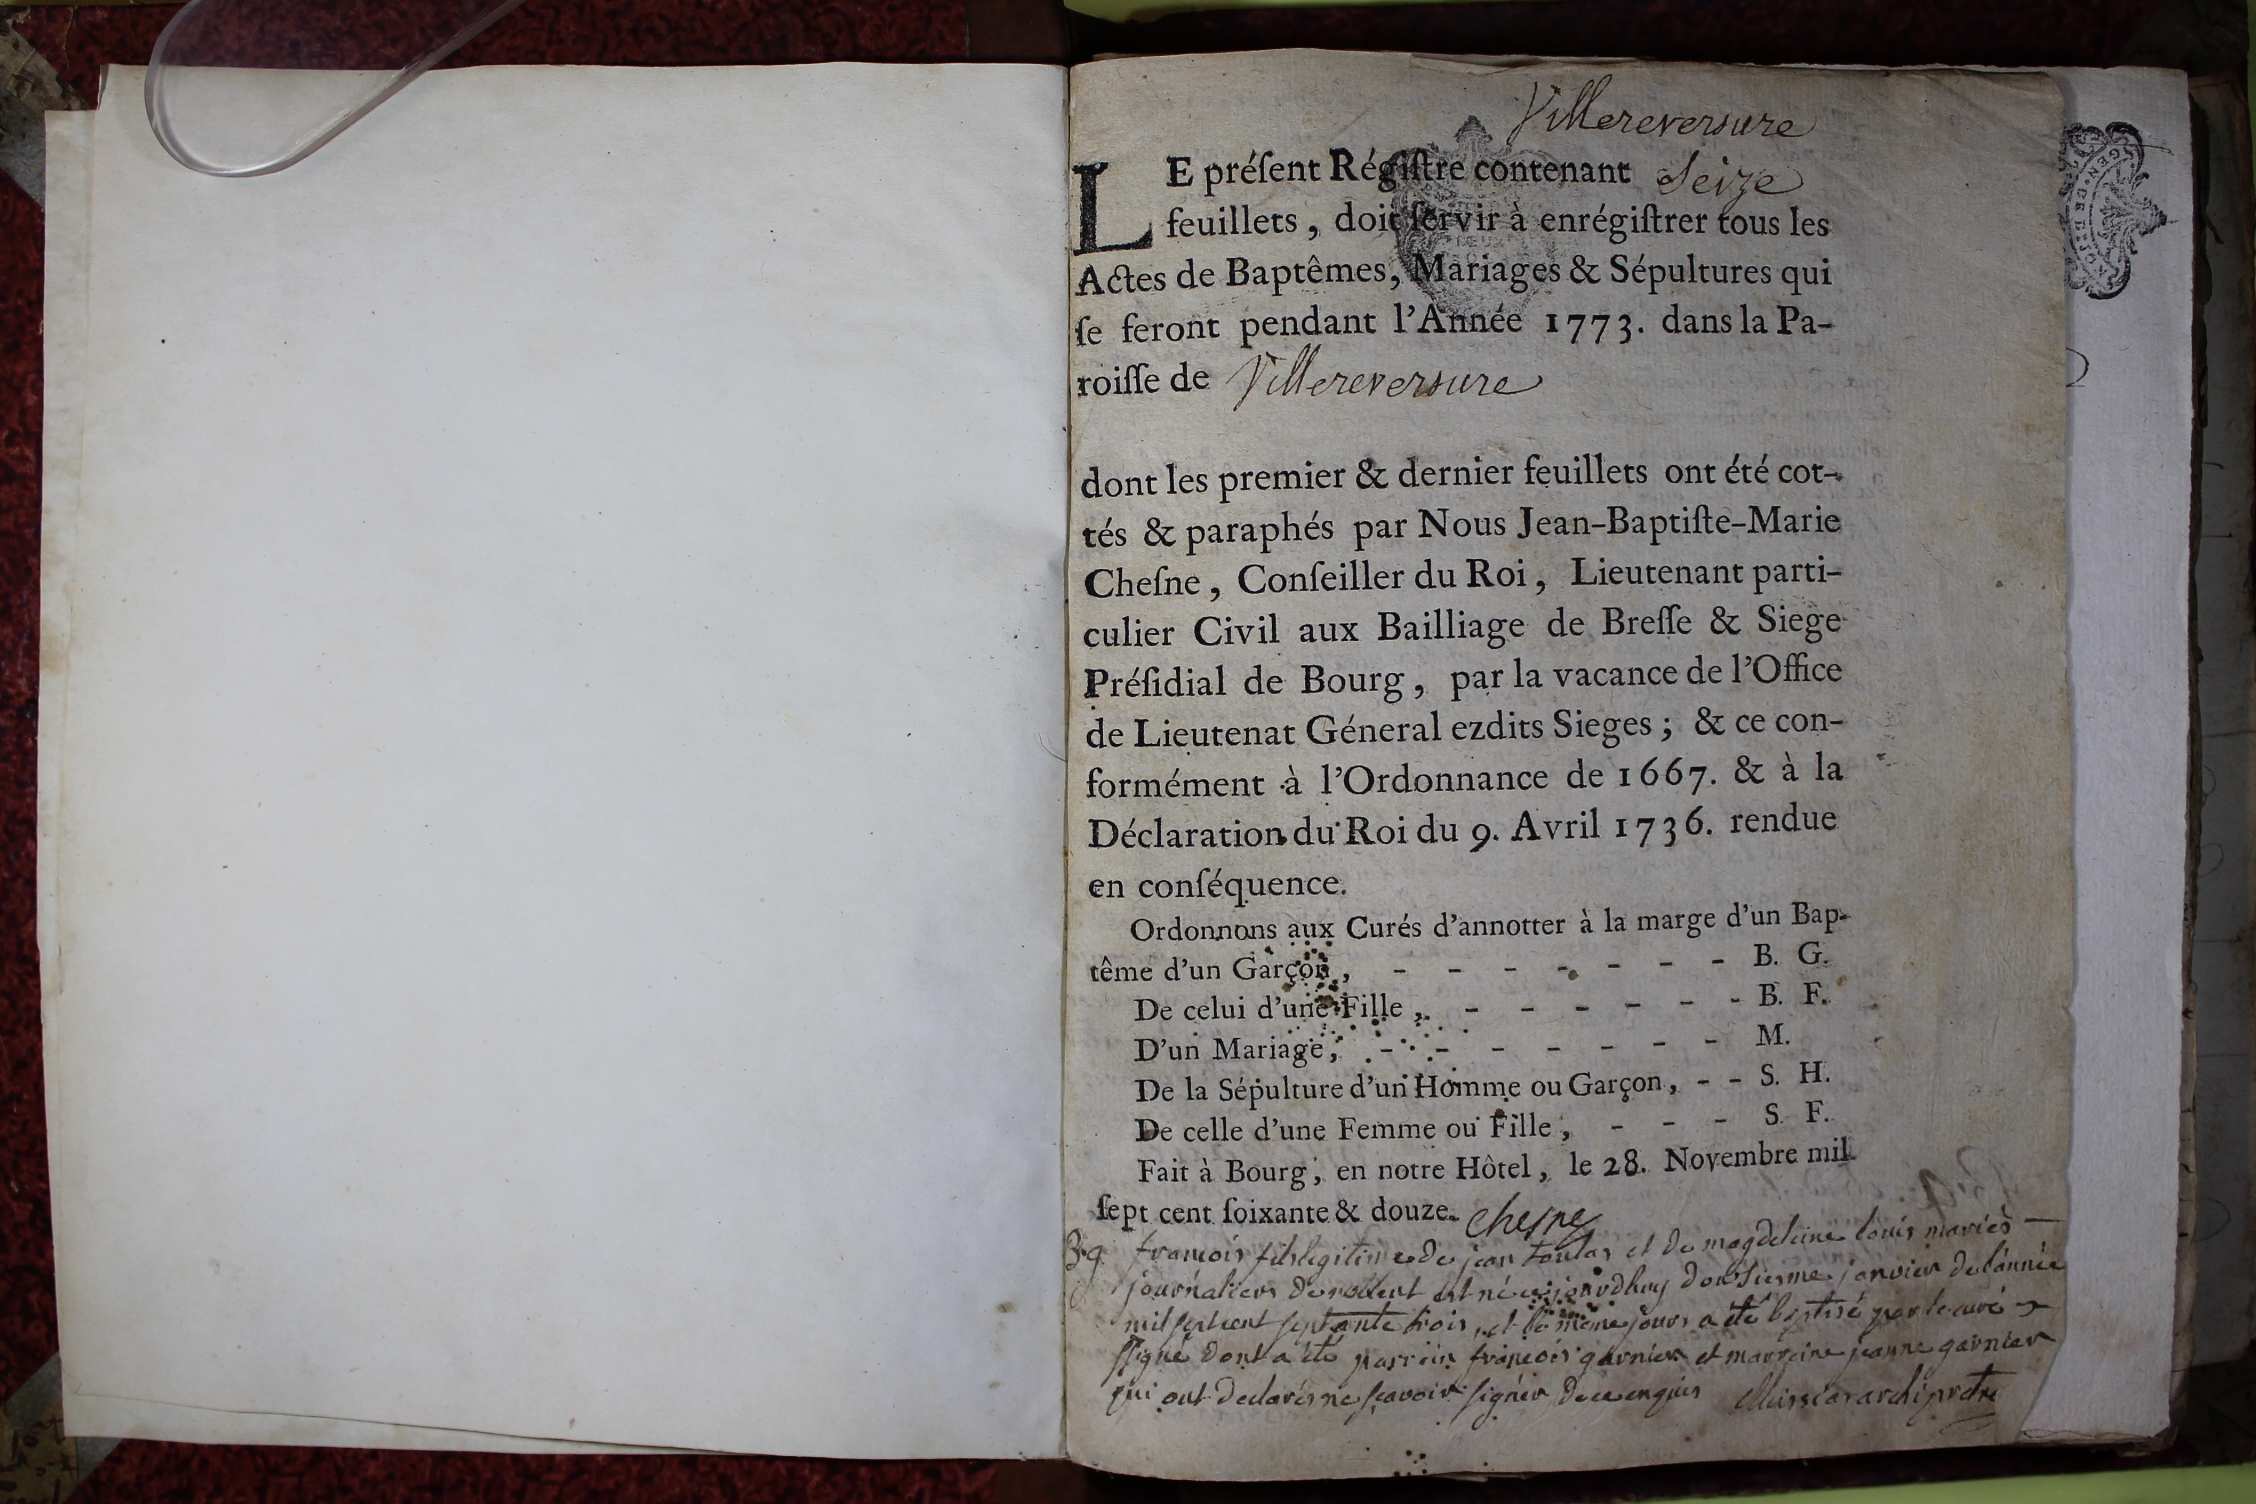 Villereversure
LE préſent Régiſtre contenant Seize
feuillets, doit ſervir à enrégiſtrer tous les
Actes de Baptêmes, Mariages & Sépultures qui
ſe feront pendant l'Année 1773. dans la Pa-
roiſſe de Villereversure
dont les premier & dernier feuillets ont été cot-
tés & paraphés par Nous Jean-Baptiſte-Marie
Cheſne, Conſeiller du Roi, Lieutenant parti-
culier Civil aux Bailliage de Breſſe & Siege
Préſidial de Bourg, par la vacance de l'Office
de Lieutenat Géneral ezdits Sieges; & ce con-
formément à l'Ordonnance de 1667. & à la
Déclaration du Roi du 9. Avril 1736. rendue
en conſéquence.
Ordonnons aux Curés d'annotter à la marge d'un Bap-
tême d'un Garçon, - - - - - - - B. G.
De celui d'une Fille, - - - - - - B. F.
D'un Mariage, - - - - - - - M.
De la Sépulture d'un Homme ou Garçon, - - S. H.
De celle d'une Femme ou Fille, - - - S. F.
Fait à Bourg, en notre Hôtel, le 28. Novembre mil
ſept cent ſoixante & douze. Chesne
B. g. francois fils legitime de jean et de magdeleine louis mariés
journaliers de est né jourdhuy douzieme janvier de l'année
mil sept cent septante trois, et le meme jour a été baptisé par le curé
ssigné dont a été parrain francois garnier et marreine jeanne garnier
qui ont declarés ne scavoir signér de ce enquis archipretre